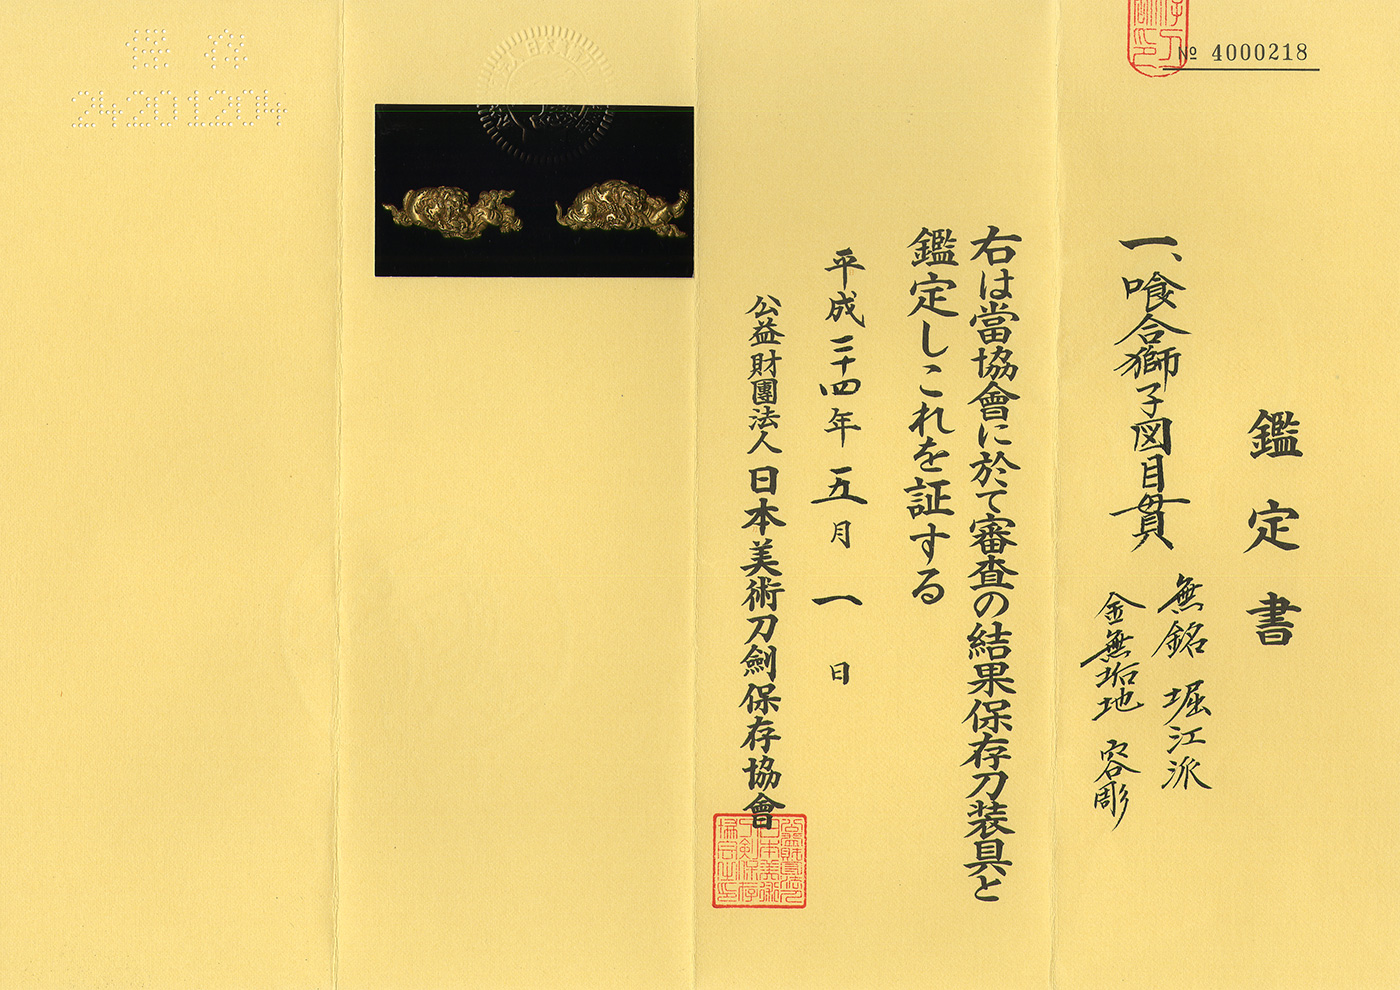 № 4000218
鑑定書
一、喰合獅子図目貫
無銘 堀江派
金無垢地 容彫
右は當協會に於て審査の結果保存刀装具と
鑑定しこれを証する
平成二十四年 五月 一日
公益財團法人 日本美術刀劍保存協會
保存
24201204